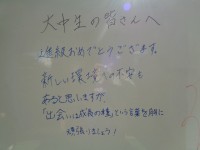 大中生の皆さんへ
進級おめでとうございます。
新しい環境での不安も
あると思いますが、
「出会いは成長の種」という言葉を胸に
頑張りましょう！